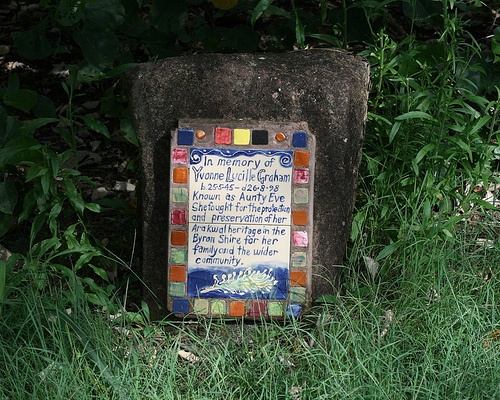 In memory of
Yvonne Lucille Graham
b.25·5·45 - d.26·8·98
Known as Aunty Eve
She fought for the protection
and preservation of her
Arakwal heritage in the
Byron Shire for her
family and the wider
community.